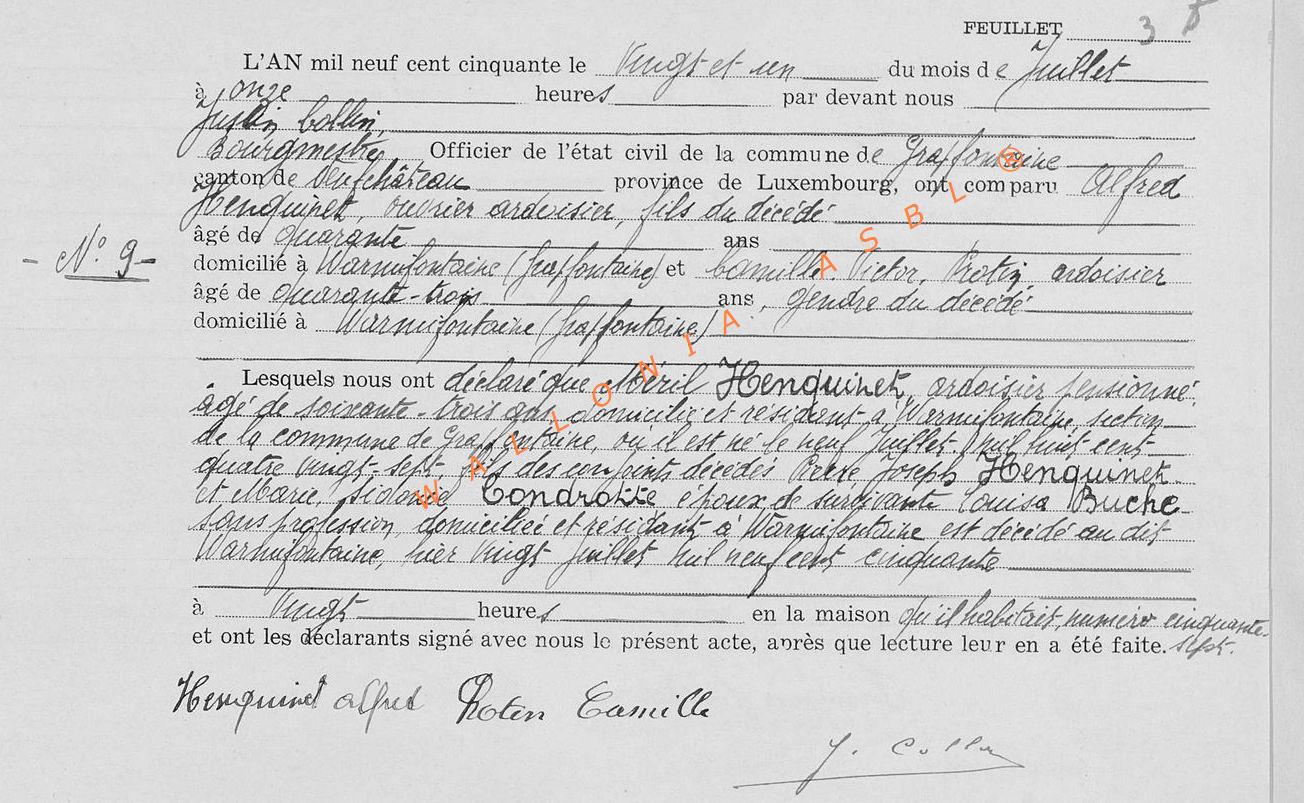 FEUILLET 3
L'AN mil neuf cent cinquante le Vingt et un du mois de Juillet
à onze heures par devant nous
Justin Collin,
Bourgmestre, Officier de l'état civil de la commune de Grapfontaine
canton de Neufchâteau province de Luxembourg, ont comparu Alfred
Henquinet, ouvrier ardoisier, fils du décédé
âgé de quarante ans
- N° 9 -
domicilié à Warmifontaine (Grapfontaine) et Camille Victor, ardoisier
âgé de quarante-trois ans, gendre du décédé
domicilié à Warmifontaine (Grapfontaine)
Lesquels nous ont déclaré que Méril Henquinet, ardoisier pensionné,
âgé de soixante-trois ans, domicilié et résidant à Warmifontaine, section
de la commune de Grapfontaine, où il est né le neuf Juillet mil huit cent
quatre vingt-sept, fils des conjoints décédés Joseph Henquinet
et Marie, Sidonie Condrotte époux de survivante Louisa Buche
sans profession, domiciliée et résidant à Warmifontaine est décédé au dit
Warmifontaine, hier vingt Juillet mil neuf cent cinquante
à Vingt heures en la maison qu'il habitait, numéro cinquante-
sept.
et ont les déclarants signé avec nous le présent acte, après que lecture leur en a été faite.
Henquinet Alfred Camille
J. Collin
WALLONIA ASBL ®